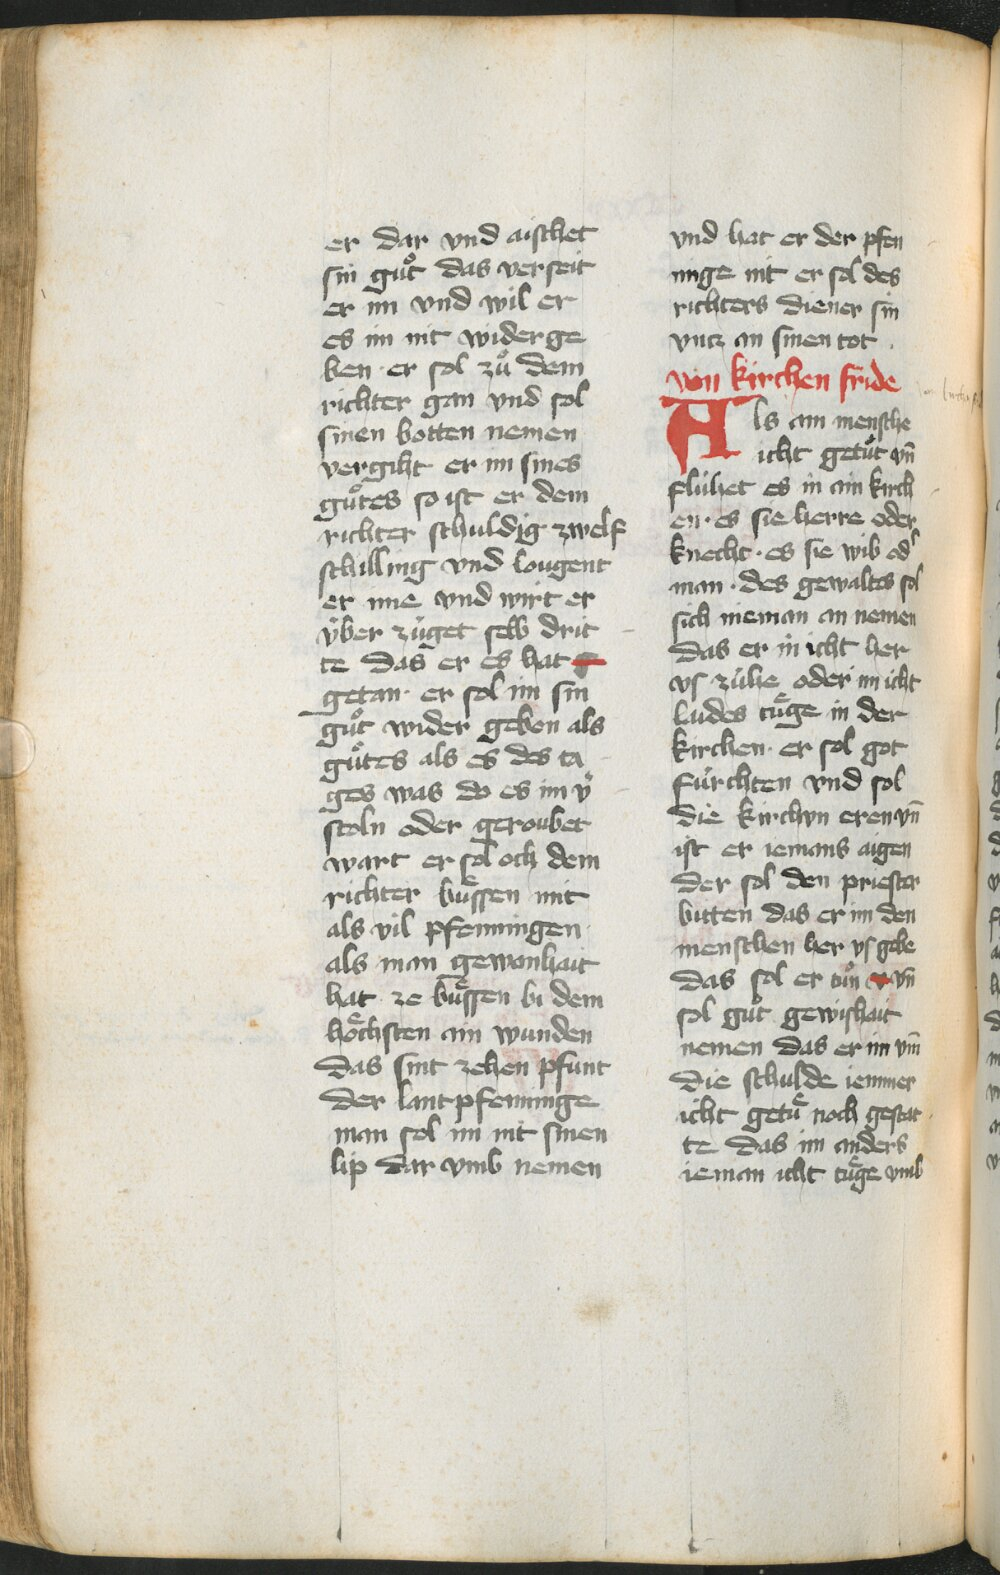 er dar vnd aischet
sin guͦt das verseit
er im vnd wil er
es im nit widerge
ben · er sol zuͦ dem
richter gan vnd sol
sinen botten nemen
vergiht er im sines
guͦtes so ist er dem
richter schuldig zwelf
schilling vnd lougent
er ime vnd wirt er
v́ber zúget selb drit
te das er es hat
getan · er sol im sin
guͦt wider geben als
guͦtes als es des ta
ges was do es im v̾
stoln oder geroubet
wart er sol och dem
richter buͤssen mit
als vil pfenningen
als man gewonhait
hat ze buͤssen bi dem
hoͤchsten ain wunden
das sint zehen pfunt
der lantpfenninge
man sol im nit sinen
lip dar vmb nemen
vnd hat er der pfen
ninge nit er sol des
richters diener sin
vntz an sinen tot .
von kirchen fride
Als ain mensche
icht getuͦt vn̄
flúhet es in ain kirch
en · es sie herre oder
knecht · es sie wib od̾
man · des gewaltes sol
sich nieman an nemen
das er in icht her
vs zúhe oder im icht
laides tuͤge in der
kirchen · er sol got
fúrchten vnd sol
die kirchvn eren vn̄
ist er iemans aigen
der sol den priester
bitten das er im den
menschen her vs gebe
das sol er tuͦn vn̄
sol guͦt gewishait
nemen das er im vm̄
die schulde iemmer
icht getuͤ noch gestat
te das im anders
ieman icht tuͤge vmb